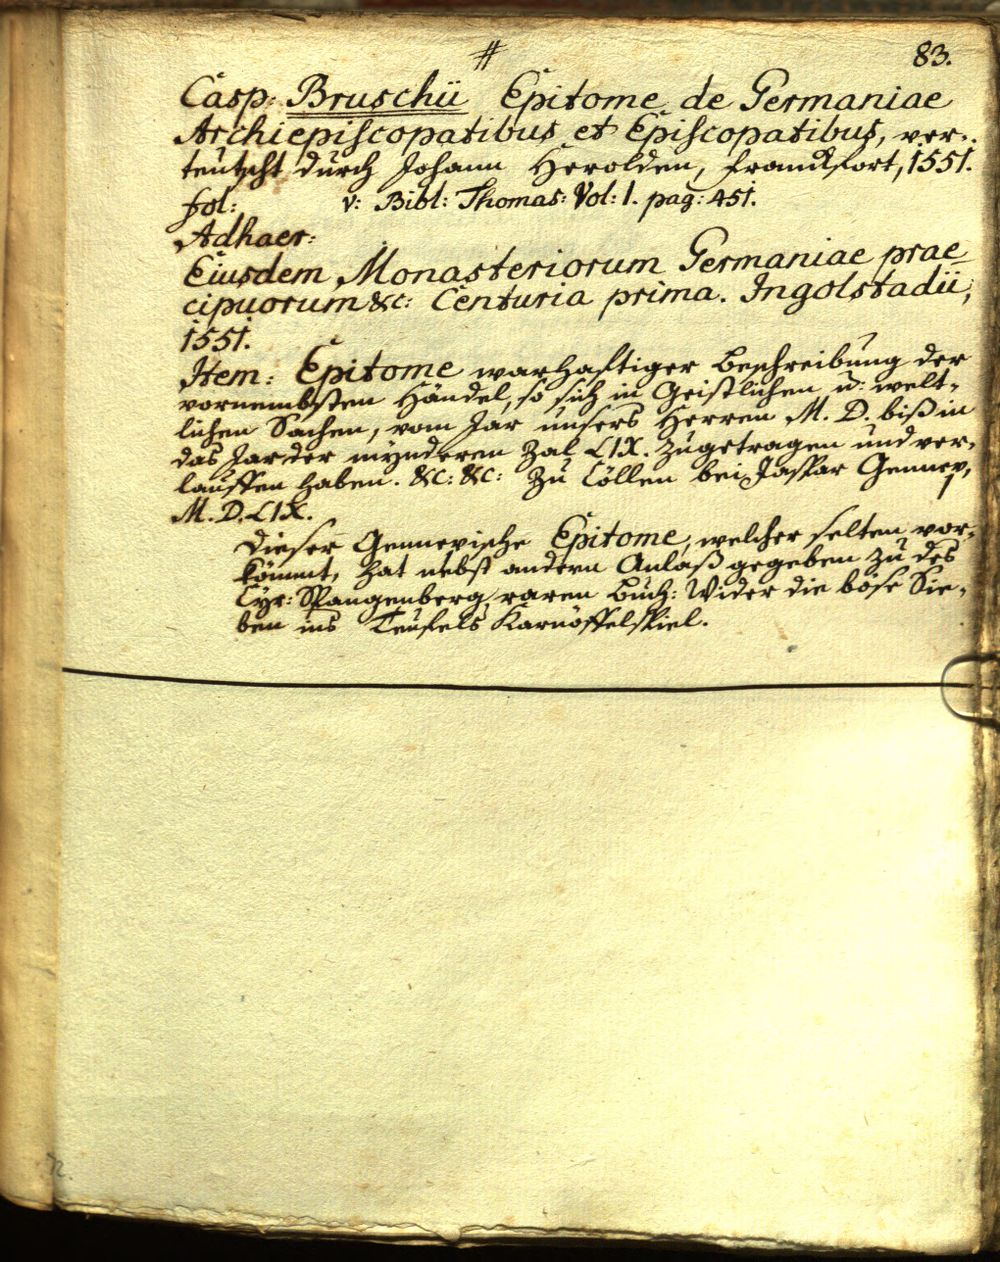 #
83.
Casp: Bruschii Epitome de Germaniae
Archiepiscopatibus et Episcopatibus, ver-
teutscht durch Johann Herolden, Franckfort, 1551.
fol: v: Bibl: Thomas: Vol: 1. pag: 451.
Adhaer:
Eiusdem Monasteriorum Germaniae prae
cipuorum &c: Centuria prima. Ingolstadii,
1551.
Item: Epitome warhafftiger Beschreibung der
vornembsten Händel, so sich in Geistlichen u: welt-
lichen Sachen, vom Jar unsers Herren M. D. biß in
das Jar der mynderen Zal LIX. zugetragen und ver-
lauffen haben. &c: &c: Zu Cöllen bei Jaspar Gennep,
M. D. LIX.
Dieser Gennepische Epitome, welcher selten vor-
kömmt, hat nebst andern Anlaß gegeben zu des
Cyr: Spangenberg raren Buch: Wider die böse Sie-
ben ins Teufels Karnöffelspiel.
72.